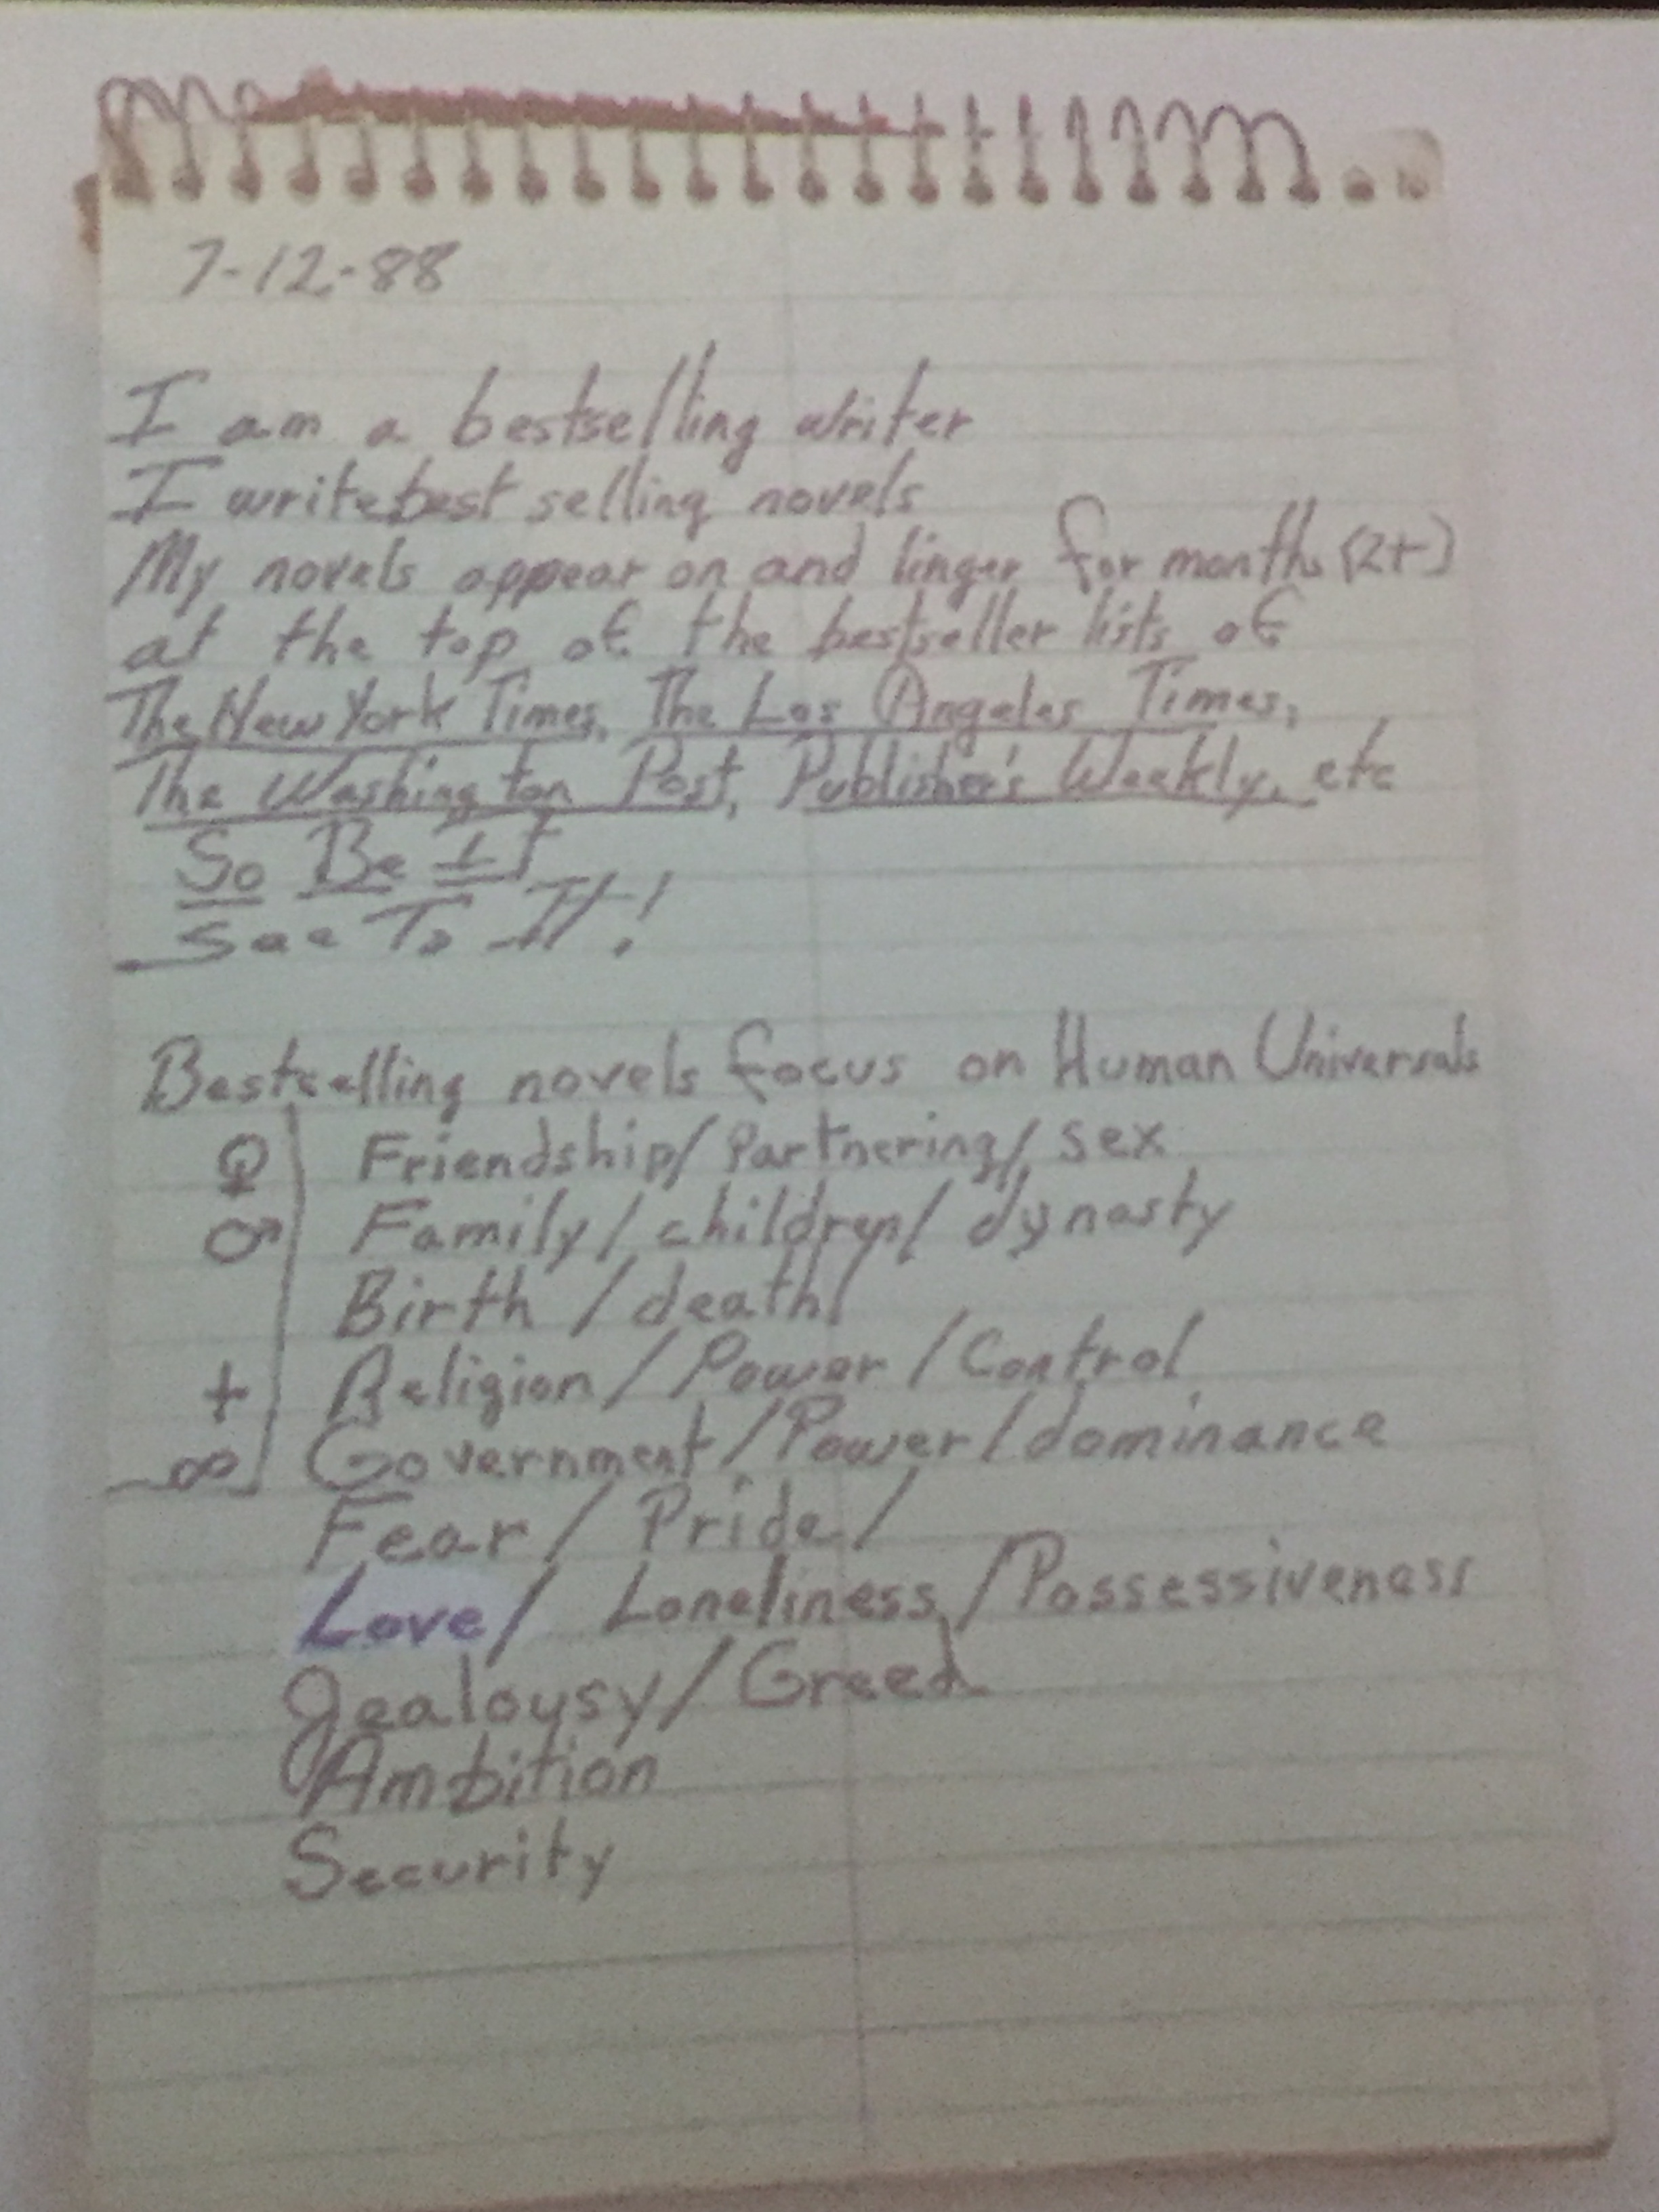 7-12-88
I am a bestselling writer
I write best selling novels
My novels appear on and linger for months (2+)
at the top of the bestseller lists of
The New York Times, The Los Angeles Times,
The Washington Post, Publisher's Weekly, etc
So Be It
See To It!
Bestselling novels focus on Human Universals
♀ Friendship/Partnering/sex
♂ Family/children/dynasty
Birth/death/
+ Religion/Power/Control
∞ Government/Power/dominance
Fear/Pride/
Love/Loneliness/Possessiveness
Jealousy/Greed
Ambition
Security